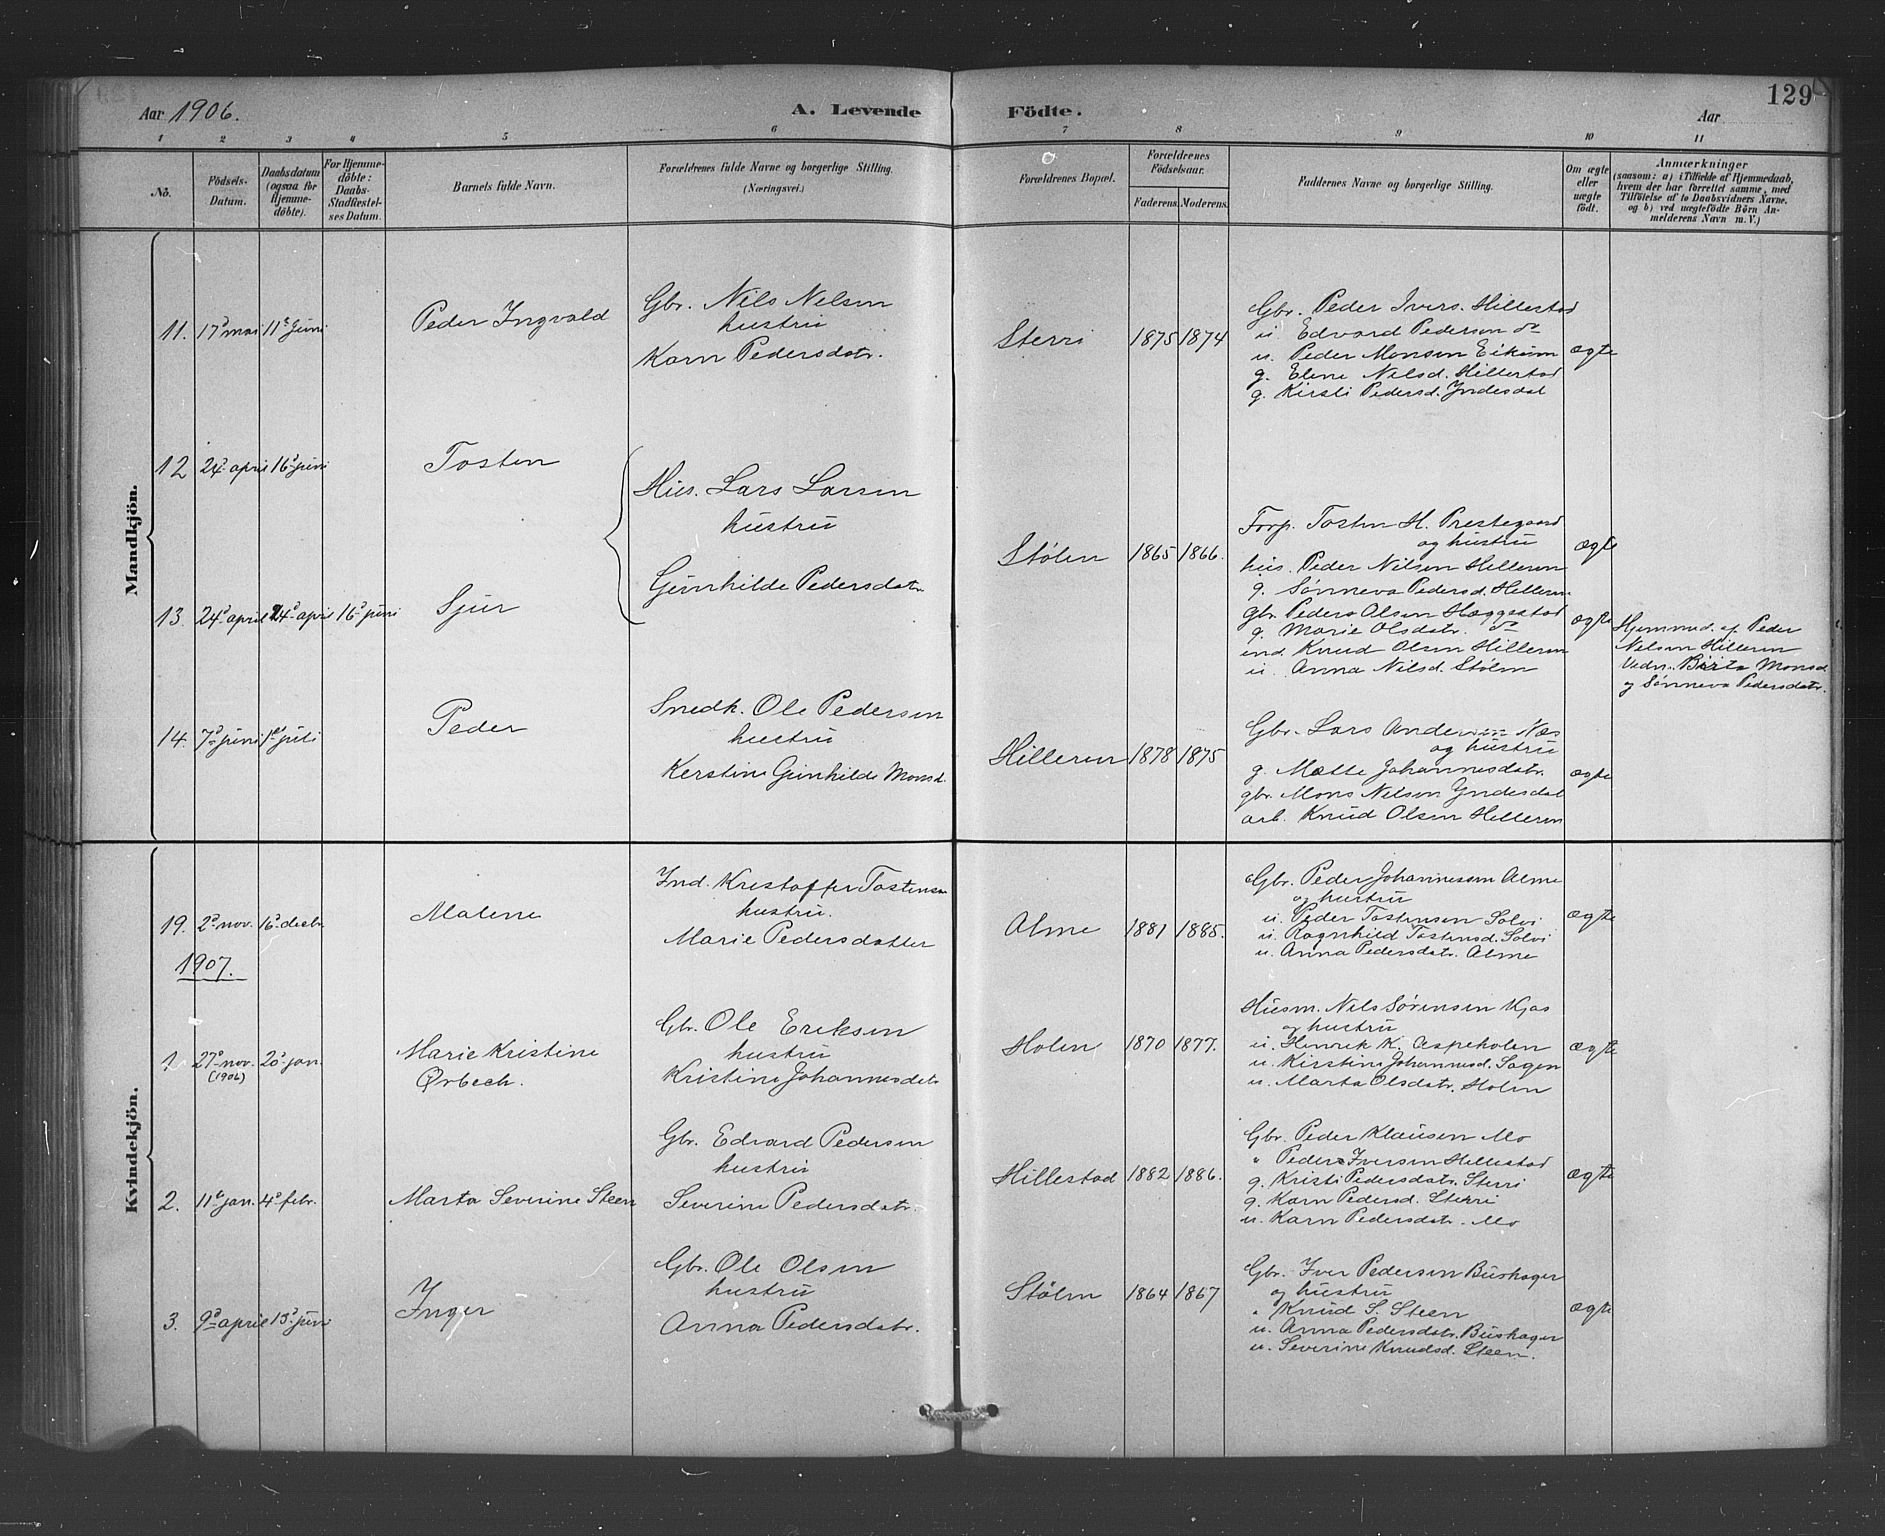 129
Aar 1906. A. Levende Födte. Aar
1 2 3 4 5 6 7 8 9 10 11
No. Födsels-Datum. Daabsdatum (ogsaa for Hjemme-döbte). For Hjemme-döbte: Daabs-Stadfæstel-ses Datum. Barnets fulde Navn. Forældrenes fulde Navne og borgerlige Stilling. (Næringsvei.) Forældrenes Bopæl. Forældrenes Födselsaar. Faderens. Moderens. Faddernes Navne og borgerlige Stilling. Om ægte eller uægte födt. Anmærkninger (saasom: a) i Tilfælde af Hjemmedaab, hvem der har forrettet samme, med Tilföielse af to Daabsvidners Navne, og b) ved uægtefödte Börn An-melderens Navn m. V.)
Mandkjön.
11. 17de mai 11te juni Peder Ingvald
Gbr. Nils Nelsen
hustru
Karn Pedersdatr.
Sterri 1875 1874
Gbr. Peder Ivers. Hillestad
u. Edvard Pedersen do
u. Peder Monsen Eikum
g. Eline Nilsd. Hillestad
g. Kirsti Pedersd. Yndesdal
ægte
12 24d april 16d juni Tosten
Hus. Lars Larsen
hustru
Gunhilde Pedersdatr.
Stølen 1865 1866.
Forp. Tosten H. Prestegaard
og hustru
hus. Peder Nilsen Hilleren
g. Sønneva Pedersd. Hilleren
gbr. Peders Olsen Hæggestad
g. Marie Olsdatr. do
ind. Knud Olsen Hilleren
u. Anna Nilsd. Stølen
ægte
13. 24d april 24d april 16d juni Sjur
ægte
Hjemmed. af Peder
Nelsen Hilleren
Vidn. Birta Monsd
og Sønneva Pedersdatr.
14. 7d juni 1ste juli Peder
Snedk. Ole Pedersen
hustru
Kerstine Gunhilde Monsd.
Hilleren 1878 1875
Gbr. Lars Andersen Næs
og hustru
g. Mætte Johannesdatr.
gbr. Mons Nilsen Yndesdal
arb. Knud Olsen Hilleren
ægte
Kvindekjön.
19. 2d nov. 16d decbr. Malene
Ind. Kristoffer Tostensen
hustru.
Marie Pedersdatter
Alme 1881 1885.
Gbr. Peder Johannesen Alme
og hustru
u. Peder Tostensen Solvi
u. Ragnhild Tostensd. Solvi
u. Anna Pedersdatr. Alme
ægte
1907.
1. 27d nov. (1906) 20d jan. Marie Kristine
Ørbech.
Gbr. Ole Eriksen
hustru
Kristine Johannesdatr
Holen 1870 1877.
Husm. Nils Sørensen Kjos
og hustru
u. Henrik K. Aspeholen
u. Kirstine Johannesd. Sagen
u. Marta Olsdatr. Holen
ægte
2. 11te jan. 4d febr. Marta Severine Steen
Gbr. Edvard Pedersen
hustru
Severine Pedersdatr.
Hillestad 1882 1886.
Gbr. Peder Klausen Mo
" Peder Iversen Hillestad
g. Kristi Pedersdatr. Sterri
g. Karn Pedersd. Sterri
u. Karn Pedersdatr. Mo
ægte
3. 9d april 15d juni Inger
Gbr. Ole Olsen
hustru
Anna Pedersdatr.
Stølen 1864 1867
Gbr. Iver Pedersen Bushager
og hustru
" Knud S. Steen
u. Anna Pedersdatr. Bushager
u. Severine Knudsd. Steen.
ægte